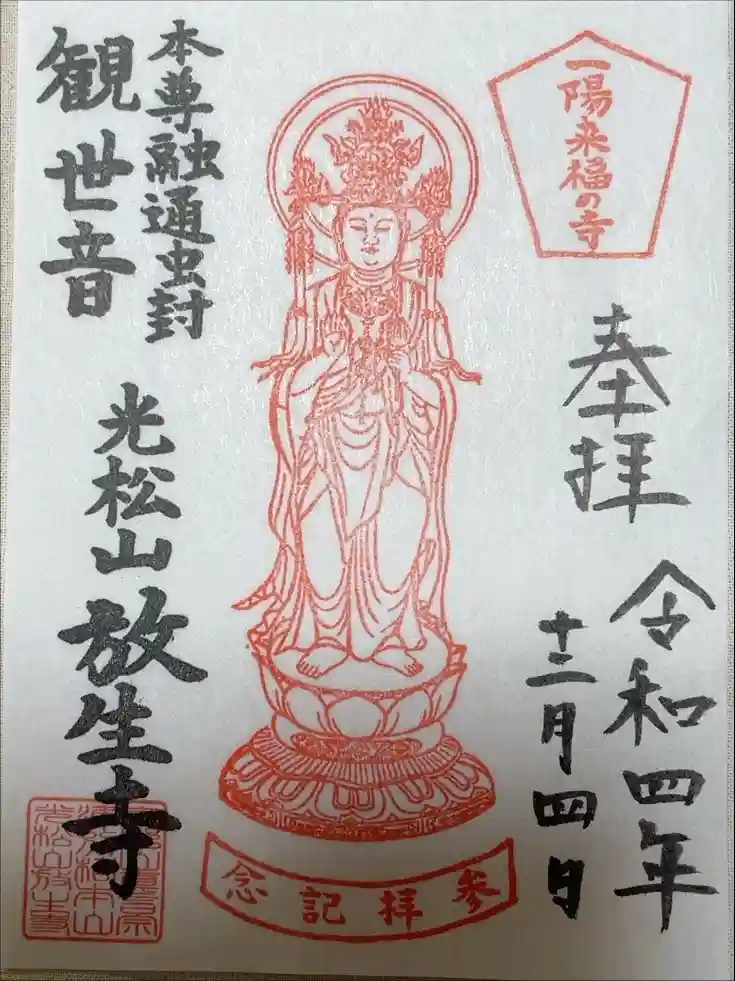 一陽来福の寺
奉拝
令和四年
十二月四日
参拝記念
本尊融通虫封
観世音
光松山放生寺